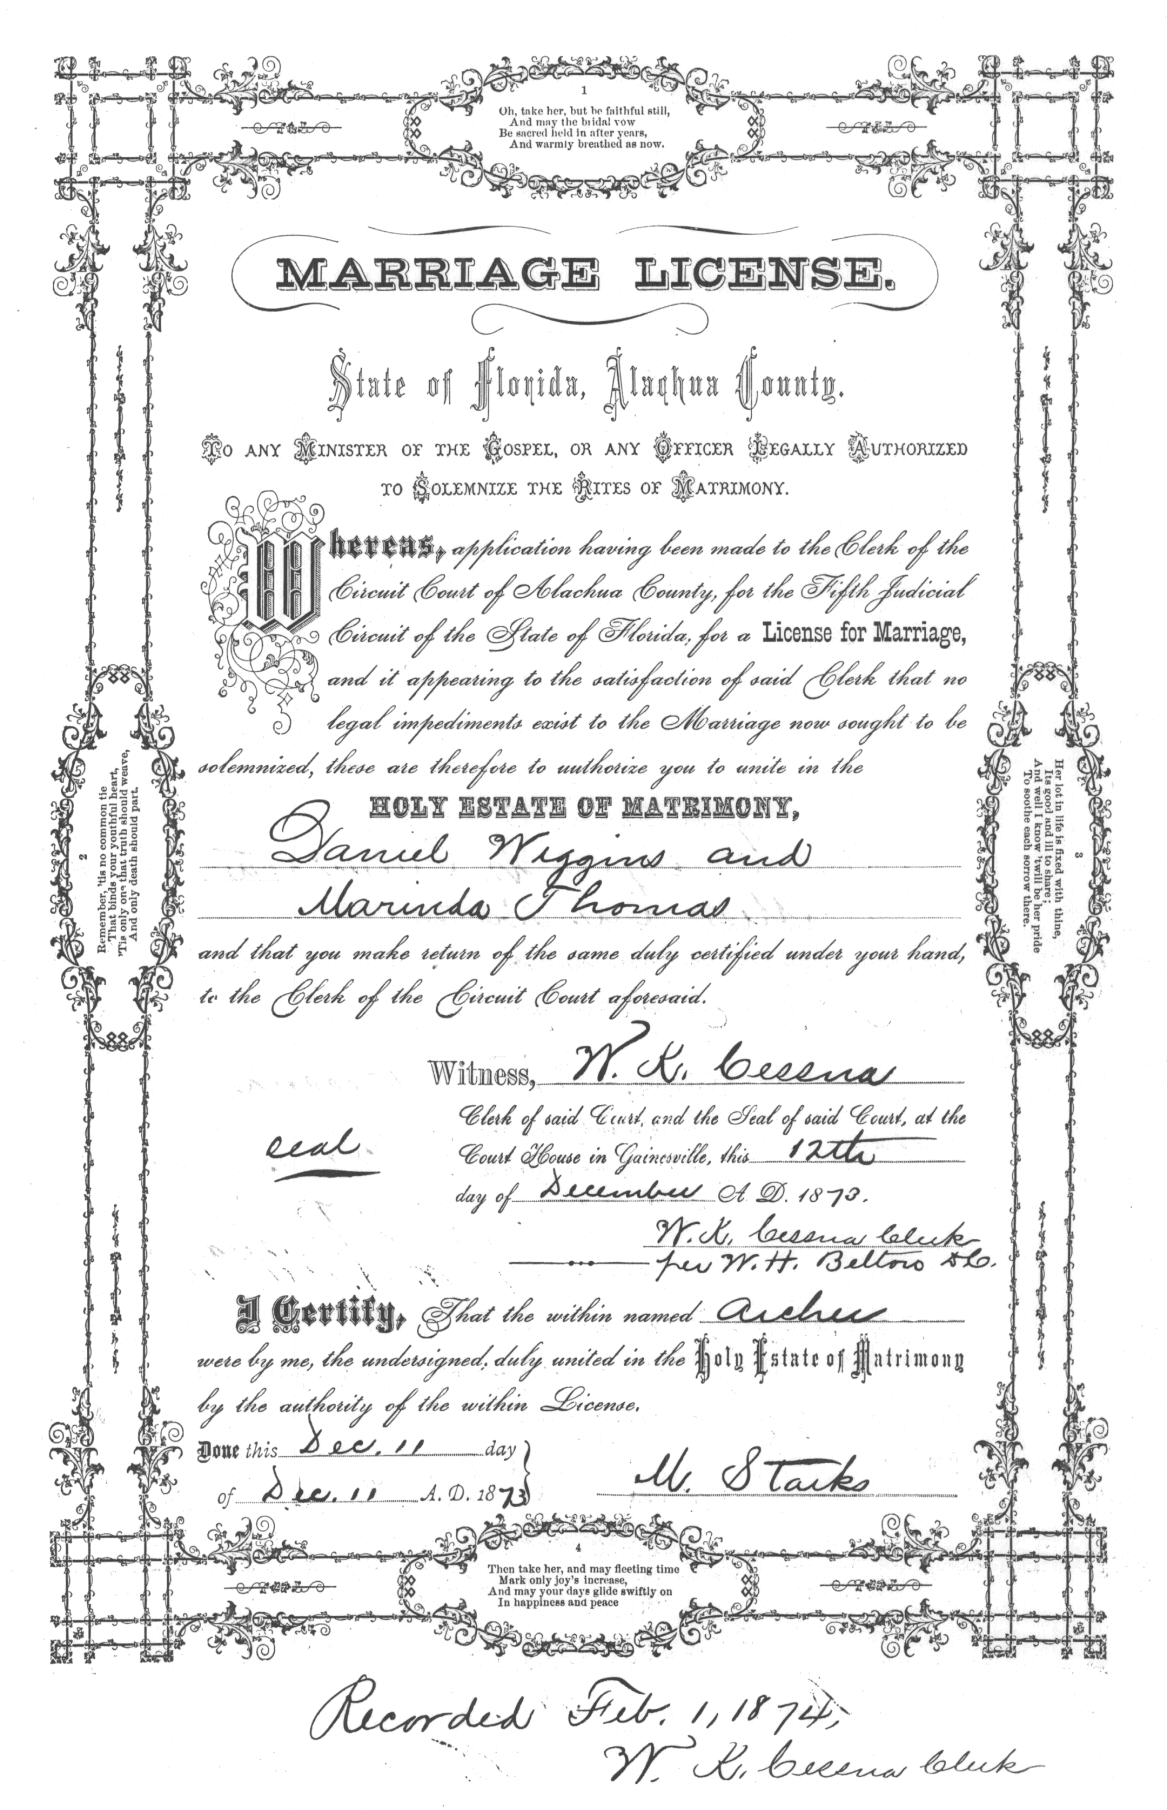 1
Oh, take her, but be faithful still,
And may the bridal vow
Be sacred held in after years,
And warmly breathed as now.
MARRIAGE LICENSE.
State of Florida, Alachua County.
TO ANY MINISTER OF THE GOSPEL, OR ANY OFFICER LEGALLY AUTHORIZED
TO SOLEMNIZE THE RITES OF MATRIMONY.
Whereas, application having been made to the Clerk of the
Circuit Court of Alachua County, for the Fifth Judicial
Circuit of the State of Florida, for a License for Marriage,
and it appearing to the satisfaction of said Clerk that no
legal impediments exist to the Marriage now sought to be
solemnized, these are therefore to authorize you to unite in the
HOLY ESTATE OF MATRIMONY,
Daniel Wiggins and
Marinda Thomas
and that you make return of the same duly certified under your hand,
to the Clerk of the Circuit Court aforesaid.
Witness, W. K. Cessna
Clerk of said Court, and the Seal of said Court, at the
seal
Court House in Gainesville, this 12th
day of December A. D. 1873.
W. K. Cessna Clerk
per W. H. Belton D.C.
I Certify, That the within named Archer
were by me, the undersigned, duly united in the Holy Estate of Matrimony
by the authority of the within License.
Done this Dec. 11 day
of Dec. 11 A. D. 1873
M. Starks
2
Remember, 'tis no common tie
That binds your youthful heart,
'Tis only one that truth should weave,
And only death should part.
3
Her lot in life is fixed with thine,
Its good and ill to share;
And well I know 'twill be her pride
To soothe each sorrow there.
4
Then take her, and may fleeting time
Mark only joy's increase,
And may your days glide swiftly on
In happiness and peace
Recorded Feb. 1, 1874,
W. K. Cessna Clerk